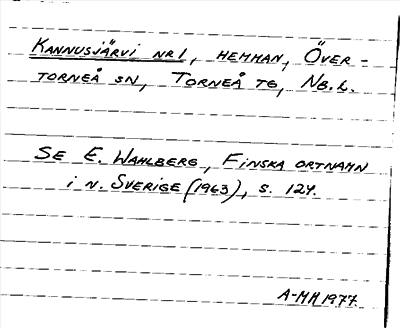 KANNUSJÄRVI NR1, HEMMAN, ÖVER-
TORNEÅ SN, TORNEÅ TG, NB.L.
SE E. WAHLBERG, FINSKA ORTNAMN
I N. SVERIGE (1963), S. 124.
A-MH 1977.